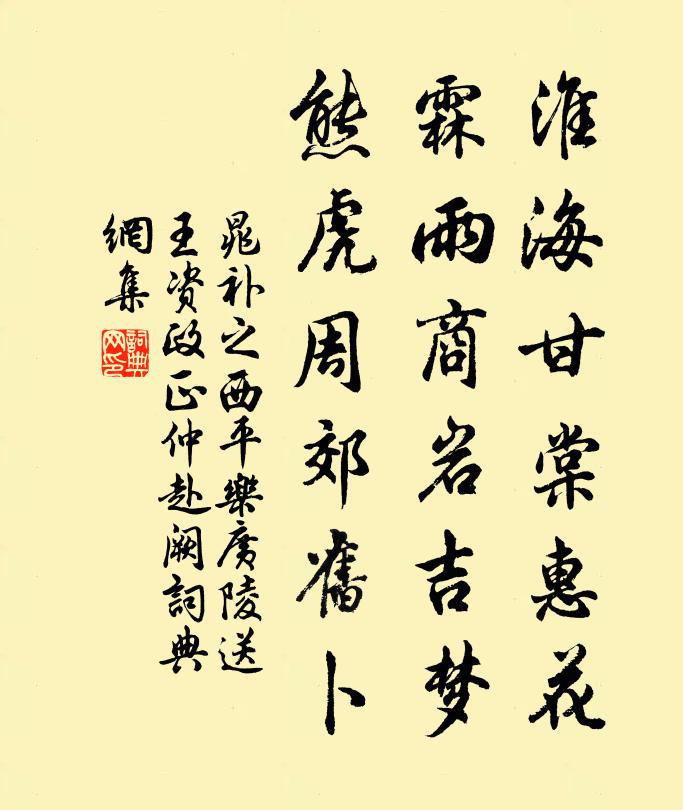 淮海甘棠惠花
霖雨商岩吉梦
熊虎周郊舊卜
晁补之西平樂廣陵送
王资政正仲赴阙詞典
網集
詞典
网印